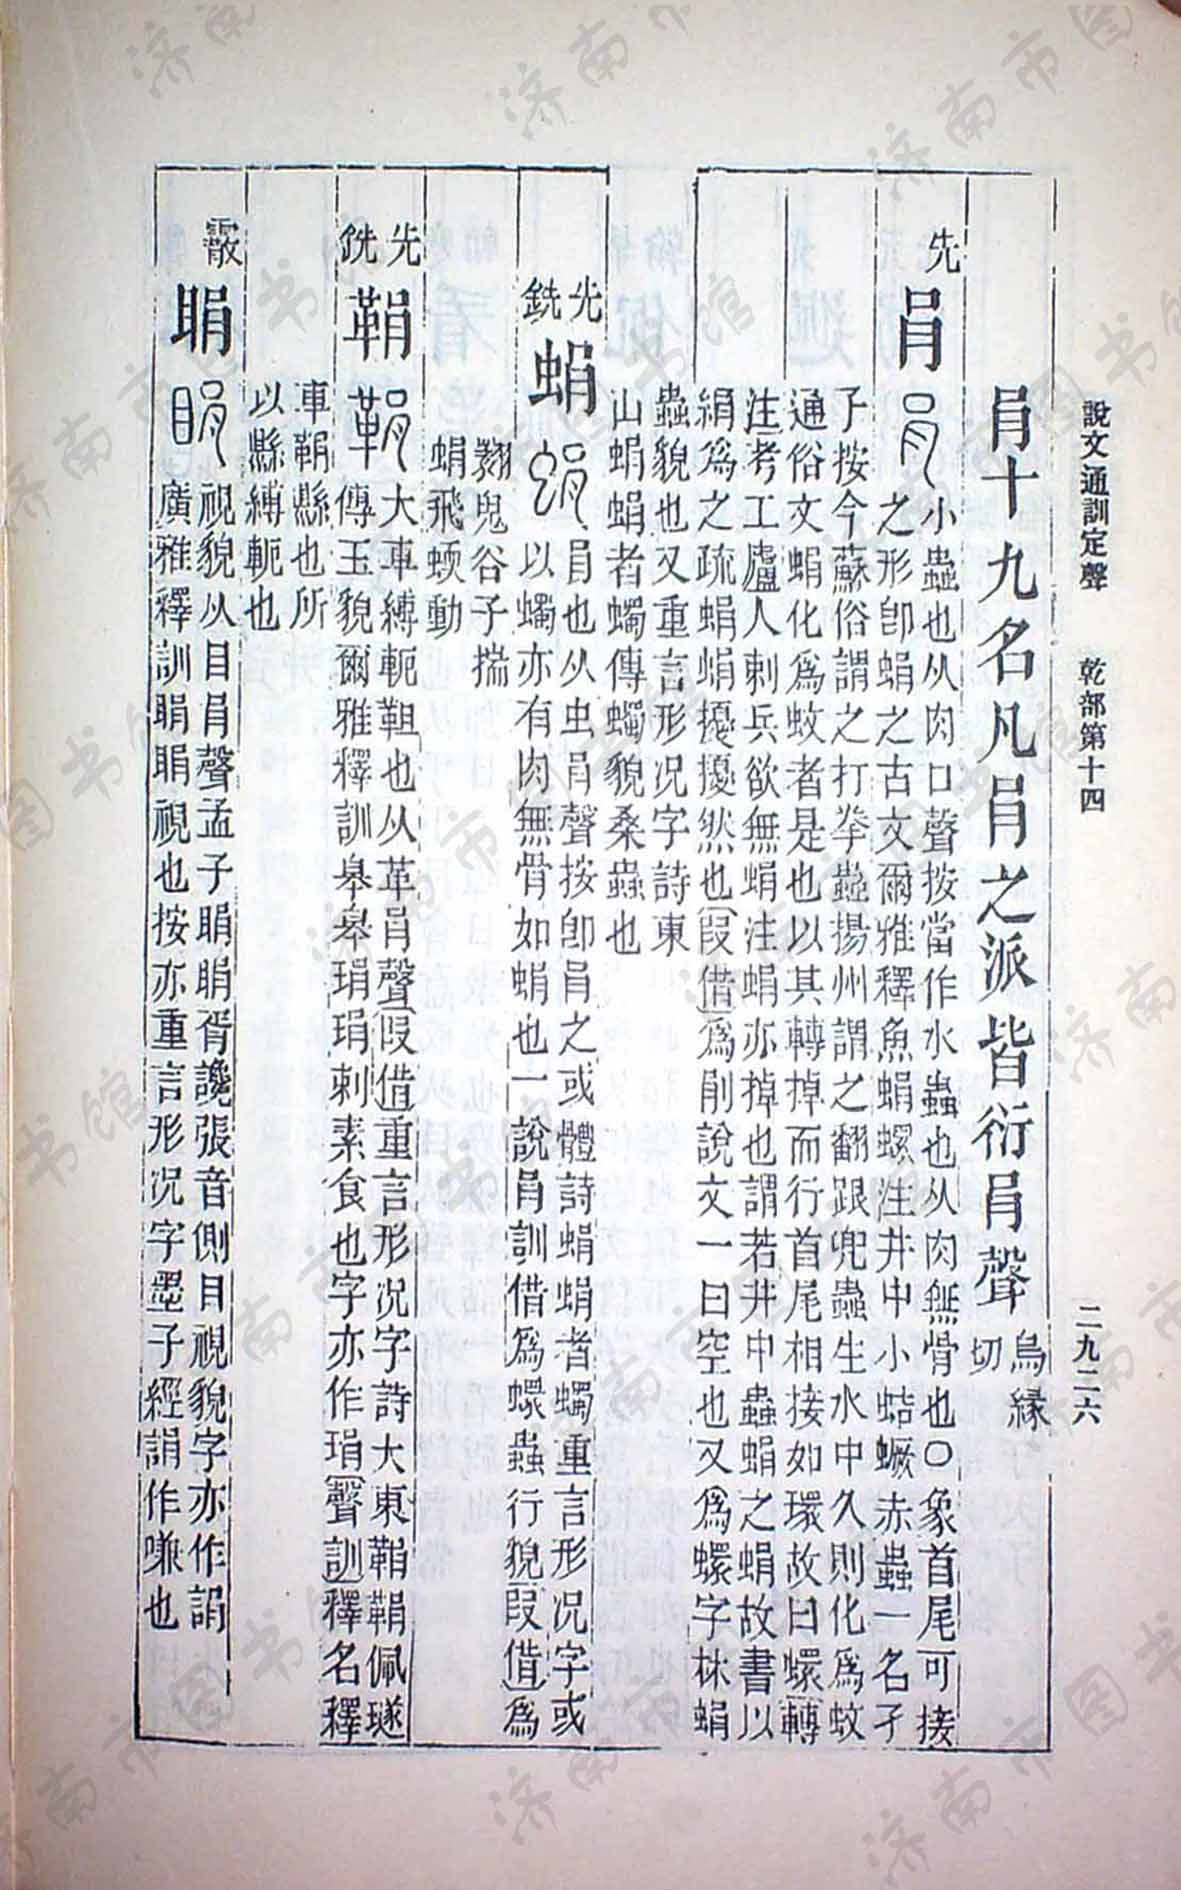 說文通訓定聲　乾部第十四　二九二六
肙十九名凡肙之派皆衍肙聲 烏緣切
先
肙
小蟲也从肉口聲按當作水蟲也从肉無骨也○象首尾可接
之形卽蜎之古文爾雅釋魚蜎蠉注井中小蛣蟩赤蟲一名孑
孒按今蘇俗謂之打拳蟲揚州謂之翻跟兜蟲生水中久則化爲蚊
通俗文蜎化爲蚊者是也以其轉掉而行首尾相接如環故曰蠉轉
注考工廬人刺兵欲無蜎注蜎亦掉也謂若井中蟲蜎之蜎故書以
絹爲之疏蜎蜎擾擾然也叚借爲削說文一曰空也又爲蠉字林蜎
蟲貌也又重言形况字詩東
山蜎蜎者蠋傳蠋貌桑蟲也
先銑
蜎
肙也从虫肙聲按卽肙之或體詩蜎蜎者蠋重言形况字或
以蠋亦有肉無骨如蜎也一說肙訓借爲蠉蟲行貌叚借爲
翾鬼谷子揣
蜎飛蝡動
先銑
鞙
大車縛軛靼也从革肙聲叚借重言形况字詩大東鞙鞙佩璲
傳玉貌爾雅釋訓皋皋琄琄刺素食也字亦作琄聲訓釋名釋
車鞙縣也所
以縣縛軛也
霰
睊
視貌从目肙聲孟子睊睊胥讒張音側目視貌字亦作詪
廣雅釋訓睊睊視也按亦重言形况字墨子經誚作嗛也